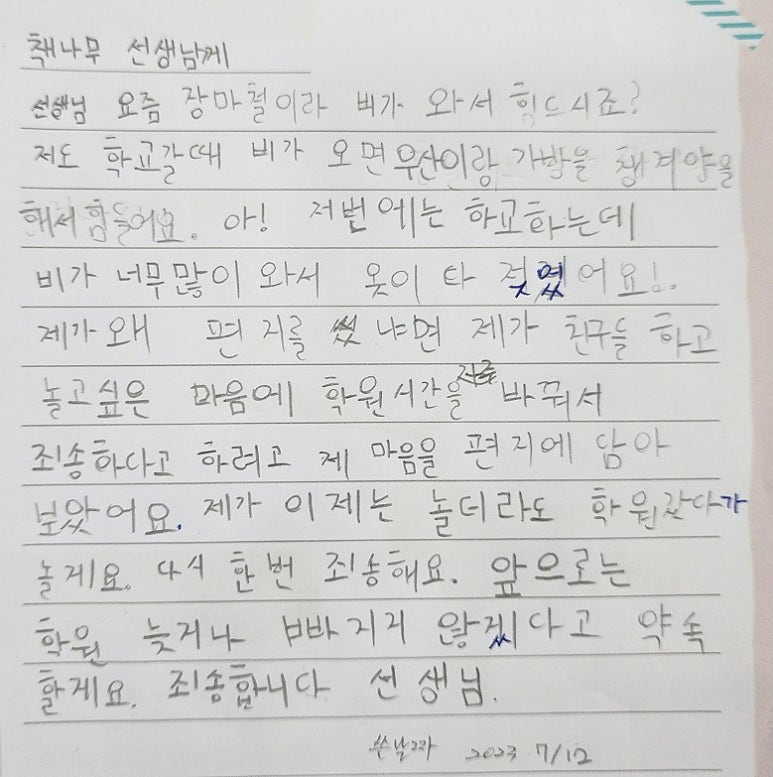 책나무 선생님께
선생님 요즘 장마철이라 비가 와서 힘드시죠?
저도 학교갈때 비가 오면 우산이랑 가방을 챙겨야을
해서 힘들어요. 아! 저번에는 하교하는데
비가 너무많이 와서 옷이 다 젖었어요!.
제가 왜 편지를 썼냐면 제가 친구들 하고
놀고싶은 마음에 학원시간을 자주 바꿔서
죄송하다고 하려고 제 마음을 편지에 담아
보았어요. 제가 이제는 놀더라도 학원갔다가
놀게요. 다시 한번 죄송해요. 앞으로는
학원 늦거나 빠지지 않겠다고 약속
할게요. 죄송합니다 선생님.
쓴날짜 2023 7/12